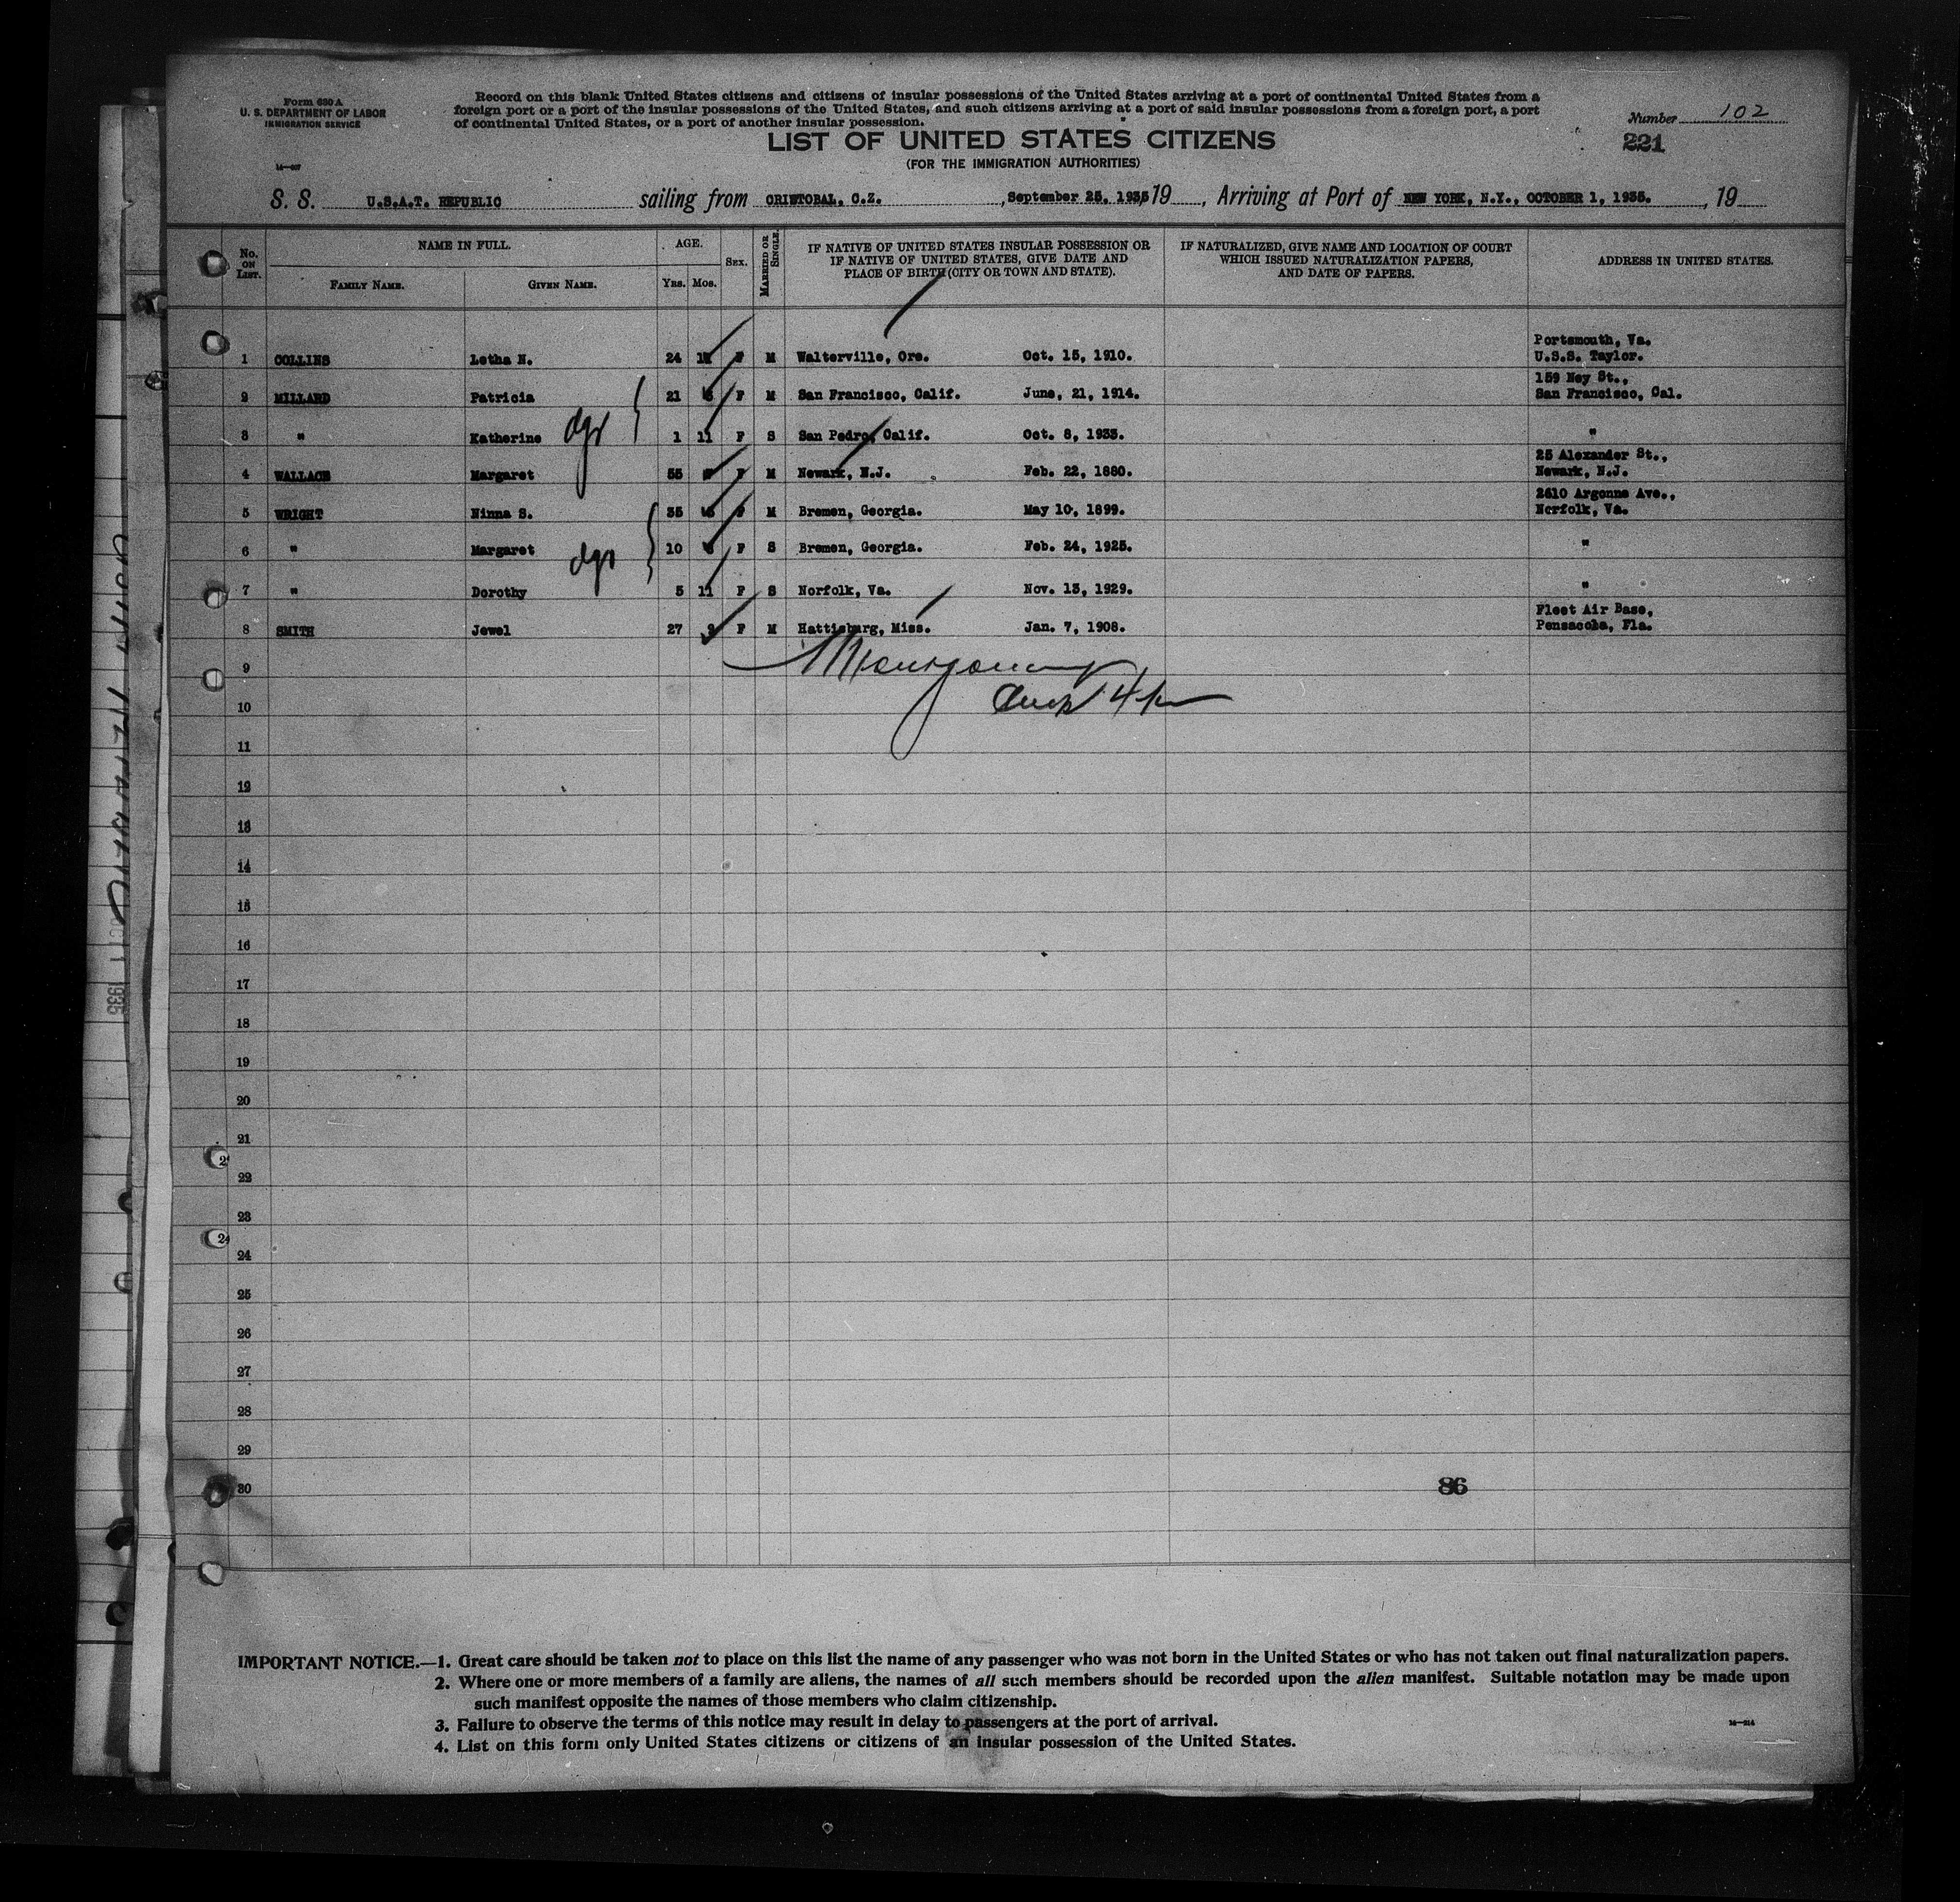 Form 630 A
U. S. DEPARTMENT OF LABOR
IMMIGRATION SERVICE
Record on this blank United States citizens and citizens of insular possessions of the United States arriving at a port of continental United States from a
foreign port or a port of the insular possessions of the United States, and such citizens arriving at a port of said insular possessions from a foreign port, a port
of continental United States, or a port of another insular possession.
Number 102
LIST OF UNITED STATES CITIZENS
221
(FOR THE IMMIGRATION AUTHORITIES)
S. S. U.S.A.T. REPUBLIC sailing from CRISTOBAL, C.Z. , September 25, 1935 19 , Arriving at Port of NEW YORK, N.Y., OCTOBER 1, 1935. , 19
No. ON LIST. NAME IN FULL. AGE. SEX. MARRIED OR SINGLE. IF NATIVE OF UNITED STATES INSULAR POSSESSION OR IF NATIVE OF UNITED STATES, GIVE DATE AND PLACE OF BIRTH (CITY OR TOWN AND STATE). IF NATURALIZED, GIVE NAME AND LOCATION OF COURT WHICH ISSUED NATURALIZATION PAPERS, AND DATE OF PAPERS. ADDRESS IN UNITED STATES.
FAMILY NAME. GIVEN NAME. YRS. MOS.
Portsmouth, Va.
1 COLLINS Letha N. 24 11 F M Walterville, Ore. Oct. 15, 1910. U.S.S. Taylor.
159 Ney St.,
2 MILLARD Patricia 21 F M San Francisco, Calif. June, 21, 1914. San Francisco, Cal.
3 " Katherine dgr 1 11 F S San Pedro, Calif. Oct. 8, 1933. "
25 Alexander St.,
4 WALLACE Margaret 55 F M Newark, N.J. Feb. 22, 1880. Newark, N.J.
2610 Argonne Ave.,
5 WRIGHT Ninna S. 35 F M Bremen, Georgia. May 10, 1899. Norfolk, Va.
6 " Margaret dgs 10 F S Bremen, Georgia. Feb. 24, 1925. "
7 " Dorothy 5 11 F S Norfolk, Va. Nov. 13, 1929. "
Fleet Air Base,
8 SMITH Jewel 27 9 F M Hattisburg, Miss. Jan. 7, 1908. Pensacola, Fla.
9 Montgomery
10
11
12
13
14
15
16
17
18
19
20
21
22
23
24
25
26
27
28
29
30 86
IMPORTANT NOTICE.—1. Great care should be taken not to place on this list the name of any passenger who was not born in the United States or who has not taken out final naturalization papers.
2. Where one or more members of a family are aliens, the names of all such members should be recorded upon the alien manifest. Suitable notation may be made upon
such manifest opposite the names of those members who claim citizenship.
3. Failure to observe the terms of this notice may result in delay to passengers at the port of arrival.
4. List on this form only United States citizens or citizens of an insular possession of the United States.